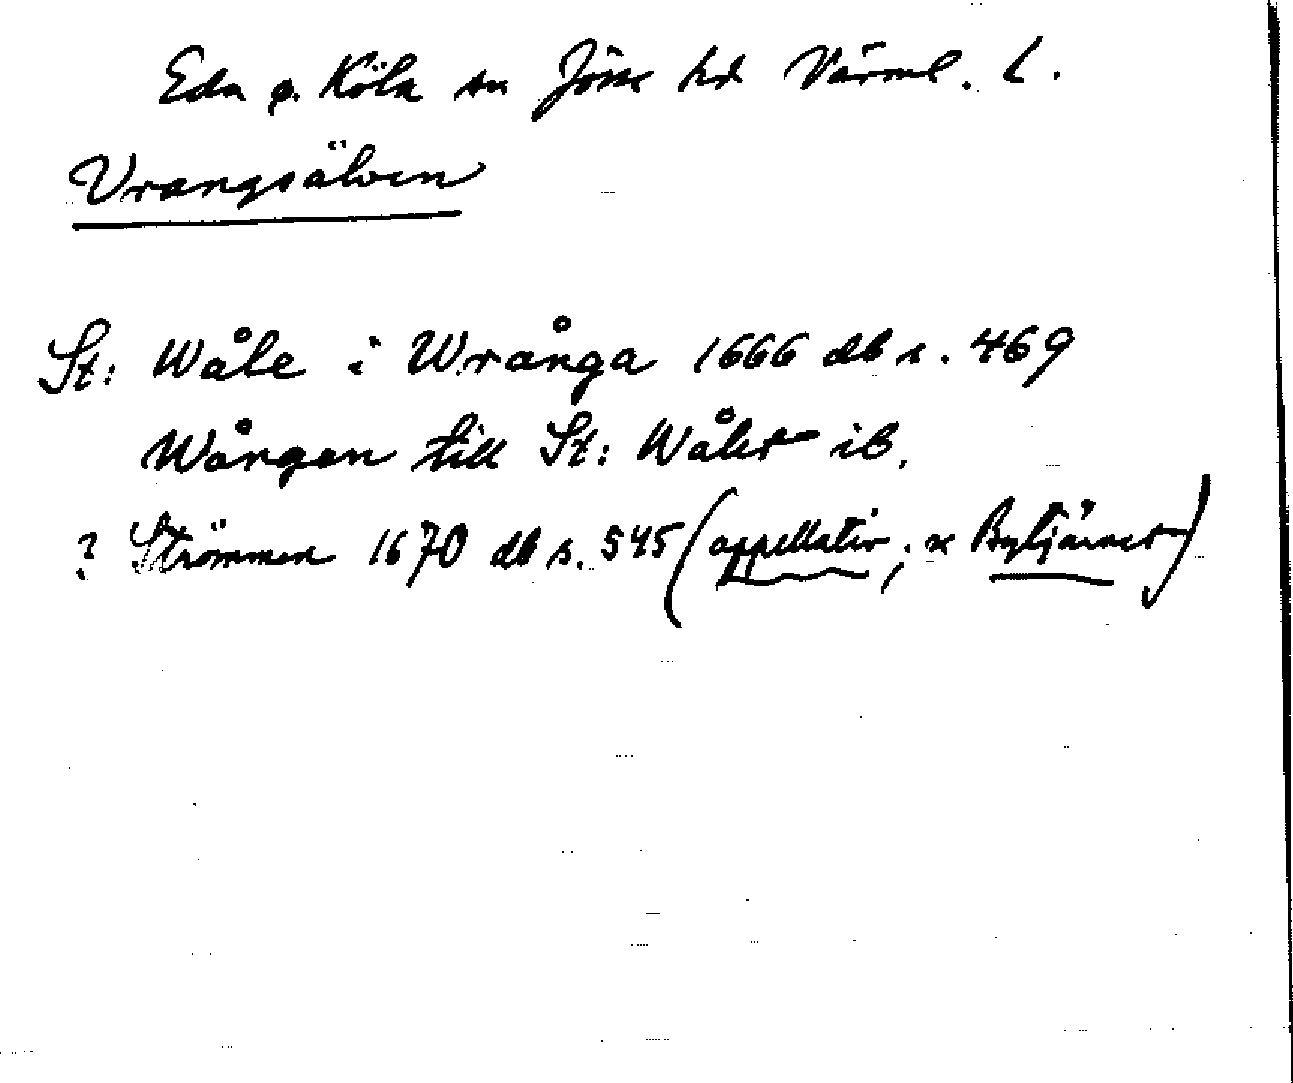 Eda o. Köla sn Jösse hd Värml. L.
Vrangsälven
St: Wåle i Wrånga 1666 db s. 469
Wången till St: Wålet ib.
? Strömmen 1670 db s. 545 (appellativ; se Bytjärnet)